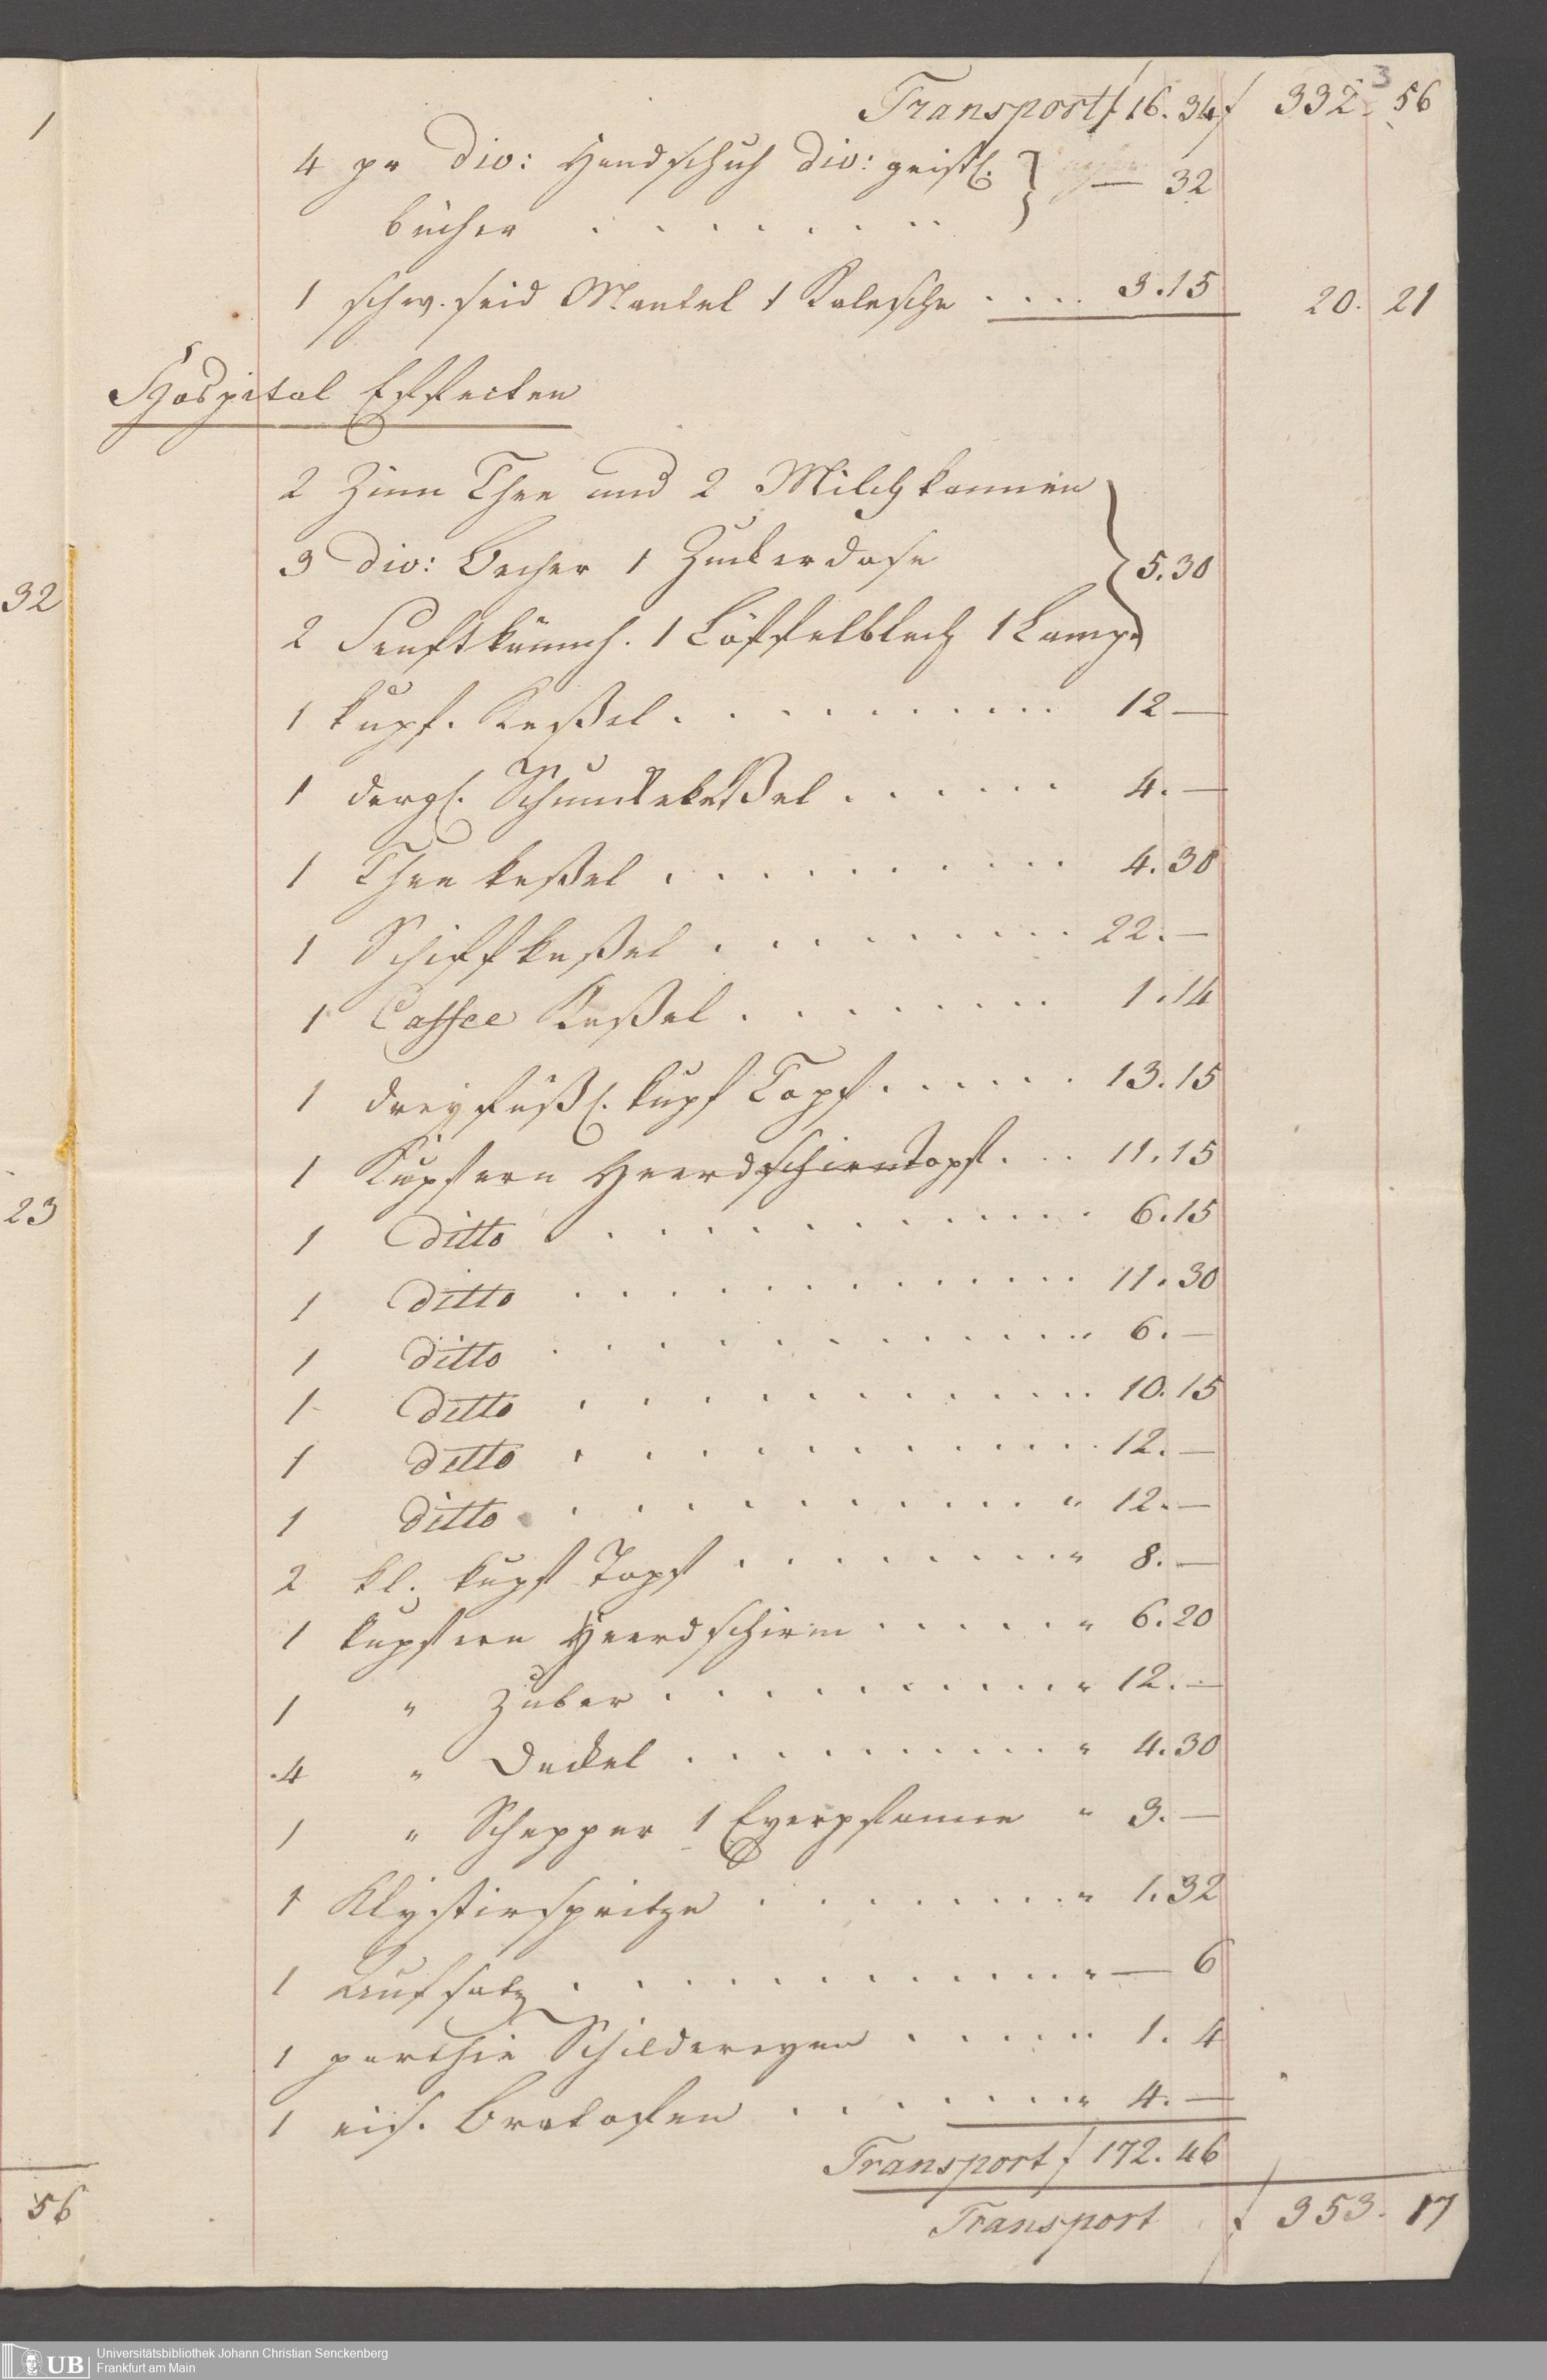 3
Transport f 16. 34 f 332. 56
4 pr div: Handschuh div: geistl. } — 32
bücher . . . . . . . .
1 schw. seid Mantel 1 Kalesche . . . . 3. 15 20. 21
Hospital Effecten
2 Zinn Thee und 2 Milchkannen
3 div: Becher 1 Zuckerdose } 5. 30
2 Senftkännch. 1 Löffelblech 1 Lampe
1 kupf. Keßel . . . . . . . . . . 12 —
1 dergl. Schunckekeßel . . . . . . 4. —
1 Theekeßel . . . . . . . . . . 4. 30
1 Schiffkeßel . . . . . . . . . . 22. —
1 Caffee Keßel . . . . . . . . 1. 14
1 dreyfüßl. kupf Topf . . . . . . 13. 15
1 Kupfern Heerdschirmtopf . . . 11. 15
1 ditto . . . . . . . . . . . 6. 15
1 ditto . . . . . . . . . . . 11. 30
1 ditto . . . . . . . . . . . 6. —
1 ditto . . . . . . . . . . . 10. 15
1 ditto . . . . . . . . . . . 12. —
1 ditto . . . . . . . . . . . " 12. —
2 kl. kupf Topf . . . . . . . . " 8. —
1 kupfern Heerdschirm . . . . . " 6. 20
1 " Zuber . . . . . . . . . . " 12. —
4 " Deckel . . . . . . . . . . " 4. 30
1 " Schepper 1 Eyerpfanne " 3. —
1 Klystirspritze . . . . . . . . " 1. 32
1 Aufsatz . . . . . . . . . . . " — 6
1 parthie Schildereyen . . . . . . 1. 4
1 eis. Bratofen . . . . . . . . " 4. —
Transport f 172. 46
Transport f 353. 17
1
32
23
56
UB
Universitätsbibliothek Johann Christian Senckenberg
Frankfurt am Main